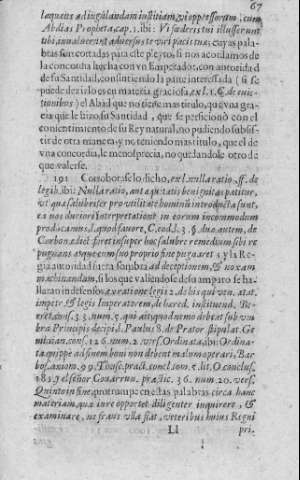 67
laqueus ad iugulandam iustitiam, vi oppressorum, cum
Abdias Propheta, cap. 1. ibi: Vi fœderis tui illuserunt
tibi, invaluerunt adversus te viri pacis tuæ; cuyas palabras
son cortadas para este pleyto, si nos acordamos de
la concordia hecha con vn Emperador, con autoridad
de su Santidad, consintiendo la parte interessada (si se
puede dezir lo es en materia graciosa, ex l. 1. C. de
) el Abad que no tiene mas titulo, que vna gracia
que le hizo su Santidad, que se perficionò con el
consentimiento de su Rey natural, no pudiendo subsistir
de otra manera, y no teniendo mas titulo, que el de
vna concordia, le menosprecia, no quedandole otro de
que valerse.
191 Corroborase lo dicho, ex l. nulla ratio, ff. de
legib. ibi: Nulla ratio, aut æquitatis benignitas patitur,
vt quæ salubriter pro vtilitate hominũ introducta sunt,
ea nos duriori interpretatione in eorum incommodum
producamus, l. quod favore, C. eod. l. 3. §. duo autem, de
Carbon. edict. firet insuper hoc salubre remedium sibi repugnans
atque cum suo proprio fine pugnaret: y la Regia
autoridad fuera sombra ad deceptionem, & noxam
machinandam, si los que valiendose de su amparo se hallaran
indefensos, ex ratione leg. 12. de his qui ven. ætat.
impetr. & legis Imperatorem, de hæred. instituend.
num. 5. qui aitquod nemo debeat sub vmbra
Principis decipi, l. Paulus 8. de Prætor stipulat.
cons. 126. num. 2. vers. Ordinata, ibi: Ordinata
quippe ad finem boni non debent malum operari, Barbos.
axiom. 99. Tusch. pract. concl. sons. lit. O. conclus.
182. y el señor Couarruu. practic. 36. num. 20. vers.
Quinto in fine, prorrumpe en estas palabras circa hanc
materiam, quæ iure oportet diligenter inquirere, &
examinare, ne fraus vlla fiat, veteribus huius Regni
Ll pri-